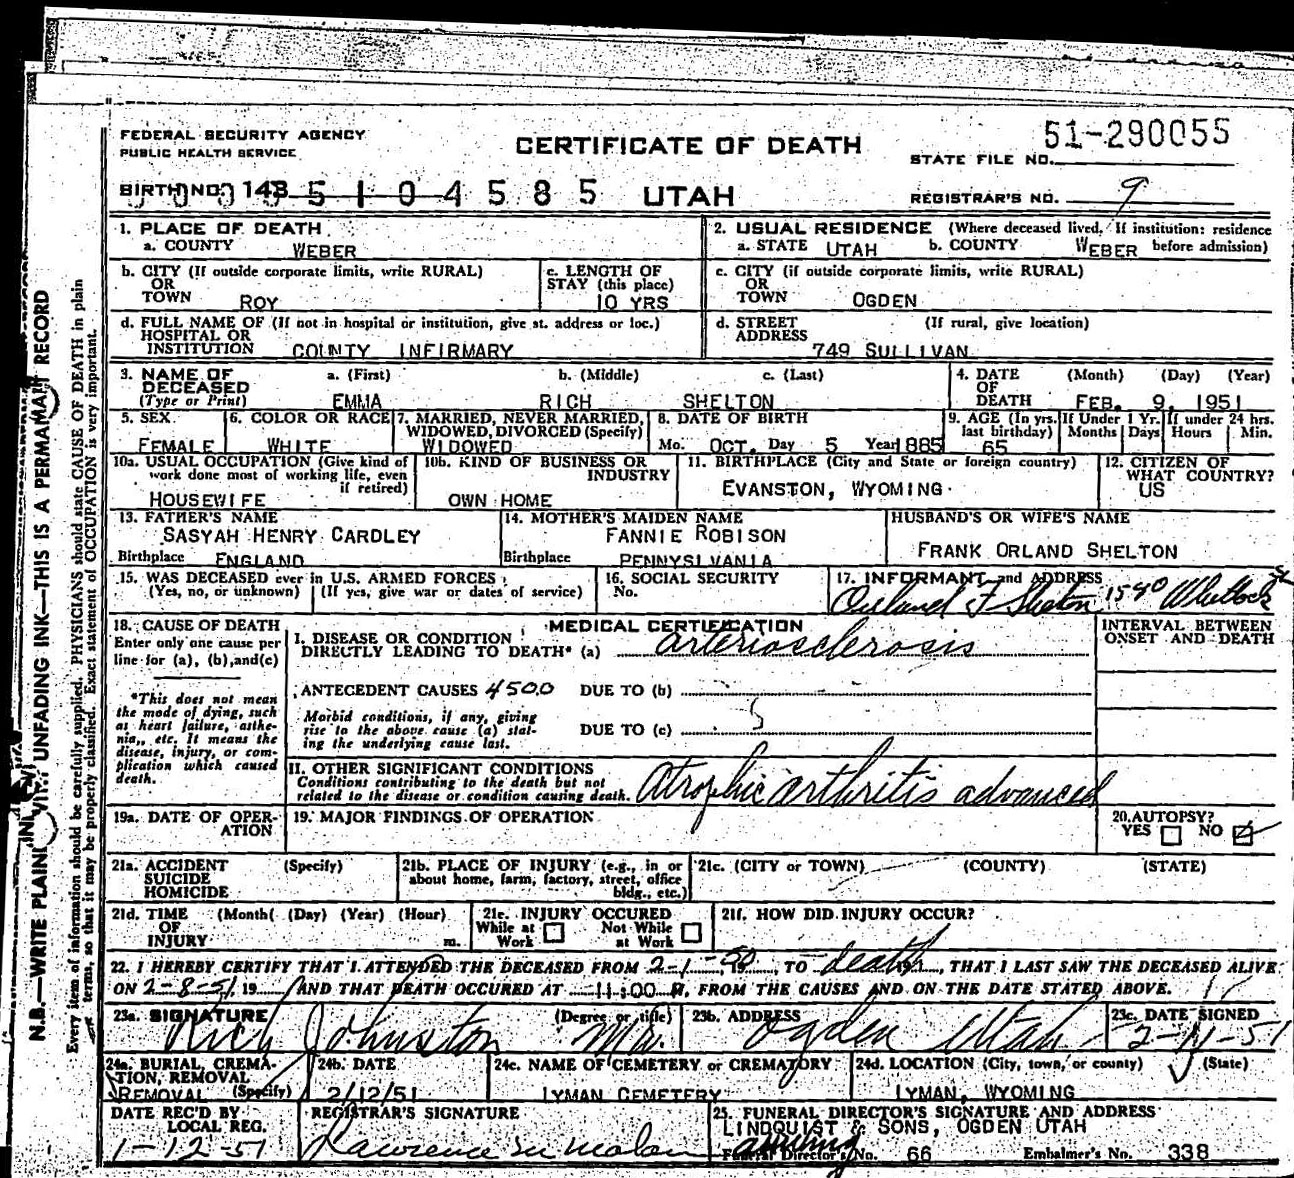 FEDERAL SECURITY AGENCY
PUBLIC HEALTH SERVICE
CERTIFICATE OF DEATH
51-290055
STATE FILE NO.
BIRTH NO. 143
5104585
UTAH
REGISTRAR'S NO. 9
1. PLACE OF DEATH
a. COUNTY WEBER
2. USUAL RESIDENCE (Where deceased lived. If institution: residence before admission)
a. STATE UTAH b. COUNTY WEBER
b. CITY (If outside corporate limits, write RURAL)
OR
TOWN ROY
c. LENGTH OF
STAY (this place)
10 YRS
c. CITY (if outside corporate limits, write RURAL)
OR
TOWN OGDEN
d. FULL NAME OF (If not in hospital or institution, give st. address or loc.)
HOSPITAL OR
INSTITUTION COUNTY INFIRMARY
d. STREET (If rural, give location)
ADDRESS
749 SULLIVAN
3. NAME OF
DECEASED
(Type or Print)
a. (First) b. (Middle) c. (Last)
EMMA RICH SHELTON
4. DATE (Month) (Day) (Year)
OF
DEATH FEB. 9, 1951
5. SEX
FEMALE
6. COLOR OR RACE
WHITE
7. MARRIED, NEVER MARRIED,
WIDOWED, DIVORCED (Specify)
WIDOWED
8. DATE OF BIRTH
Mo. OCT. Day 5 Year 1885
9. AGE (In yrs. last birthday)
65
If Under 1 Yr.
Months Days
If under 24 hrs.
Hours Min.
10a. USUAL OCCUPATION (Give kind of
work done most of working life, even
if retired)
HOUSEWIFE
10b. KIND OF BUSINESS OR
INDUSTRY
OWN HOME
11. BIRTHPLACE (City and State or foreign country)
EVANSTON, WYOMING
12. CITIZEN OF
WHAT COUNTRY?
US
13. FATHER'S NAME
SASYAH HENRY CARDLEY
Birthplace ENGLAND
14. MOTHER'S MAIDEN NAME
FANNIE ROBISON
Birthplace PENNYSLVANIA
HUSBAND'S OR WIFE'S NAME
FRANK ORLAND SHELTON
15. WAS DECEASED ever in U.S. ARMED FORCES
(Yes, no, or unknown) (If yes, give war or dates of service)
16. SOCIAL SECURITY
No.
17. INFORMANT and ADDRESS
Orland F Shelton 1540 Whitlock
18. CAUSE OF DEATH
Enter only one cause per
line for (a), (b), and (c)
*This does not mean
the mode of dying, such
as heart failure, asthe-
nia, etc. It means the
disease, injury, or com-
plication which caused
death.
MEDICAL CERTIFICATION
INTERVAL BETWEEN
ONSET AND DEATH
I. DISEASE OR CONDITION
DIRECTLY LEADING TO DEATH* (a) arteriosclerosis
ANTECEDENT CAUSES 4500 DUE TO (b)
Morbid conditions, if any, giving
rise to the above cause (a) stat-
ing the underlying cause last.
DUE TO (c)
II. OTHER SIGNIFICANT CONDITIONS
Conditions contributing to the death but not
related to the disease or condition causing death. Atrophic arthritis advanced
19a. DATE OF OPER-
ATION
19. MAJOR FINDINGS OF OPERATION
20. AUTOPSY?
YES NO
21a. ACCIDENT (Specify)
SUICIDE
HOMICIDE
21b. PLACE OF INJURY (e.g., in or
about home, farm, factory, street, office
bldg., etc.)
21c. (CITY or TOWN) (COUNTY) (STATE)
21d. TIME (Month( (Day) (Year) (Hour)
OF
INJURY m.
21e. INJURY OCCURED
While at Work Not While at Work
21f. HOW DID INJURY OCCUR?
22. I HEREBY CERTIFY THAT I ATTENDED THE DECEASED FROM 2-1-50, 19 , TO death, 19 , THAT I LAST SAW THE DECEASED ALIVE
ON 2-8-51, 19 AND THAT DEATH OCCURED AT 11:00 P, FROM THE CAUSES AND ON THE DATE STATED ABOVE.
23a. SIGNATURE (Degree or title)
Rich Johnston
23b. ADDRESS
Ogden Utah
23c. DATE SIGNED
24a. BURIAL, CREMA-
TION, REMOVAL
(Specify)
REMOVAL
24b. DATE
2/12/51
24c. NAME OF CEMETERY or CREMATORY
LYMAN CEMETERY
24d. LOCATION (City, town, or county) (State)
LYMAN, WYOMING
DATE REC'D BY
LOCAL REG.
1-12-51
REGISTRAR'S SIGNATURE
Lawrence M Malan
25. FUNERAL DIRECTOR'S SIGNATURE AND ADDRESS
LINDQUIST & SONS, OGDEN UTAH
Funeral Director's No. 66 Embalmer's No. 338
N.B.—WRITE PLAINLY WITH UNFADING INK—THIS IS A PERMANENT RECORD
Every item of information should be carefully supplied. PHYSICIANS should state CAUSE OF DEATH in plain
terms, so that it may be properly classified. Exact statement of OCCUPATION is very important.